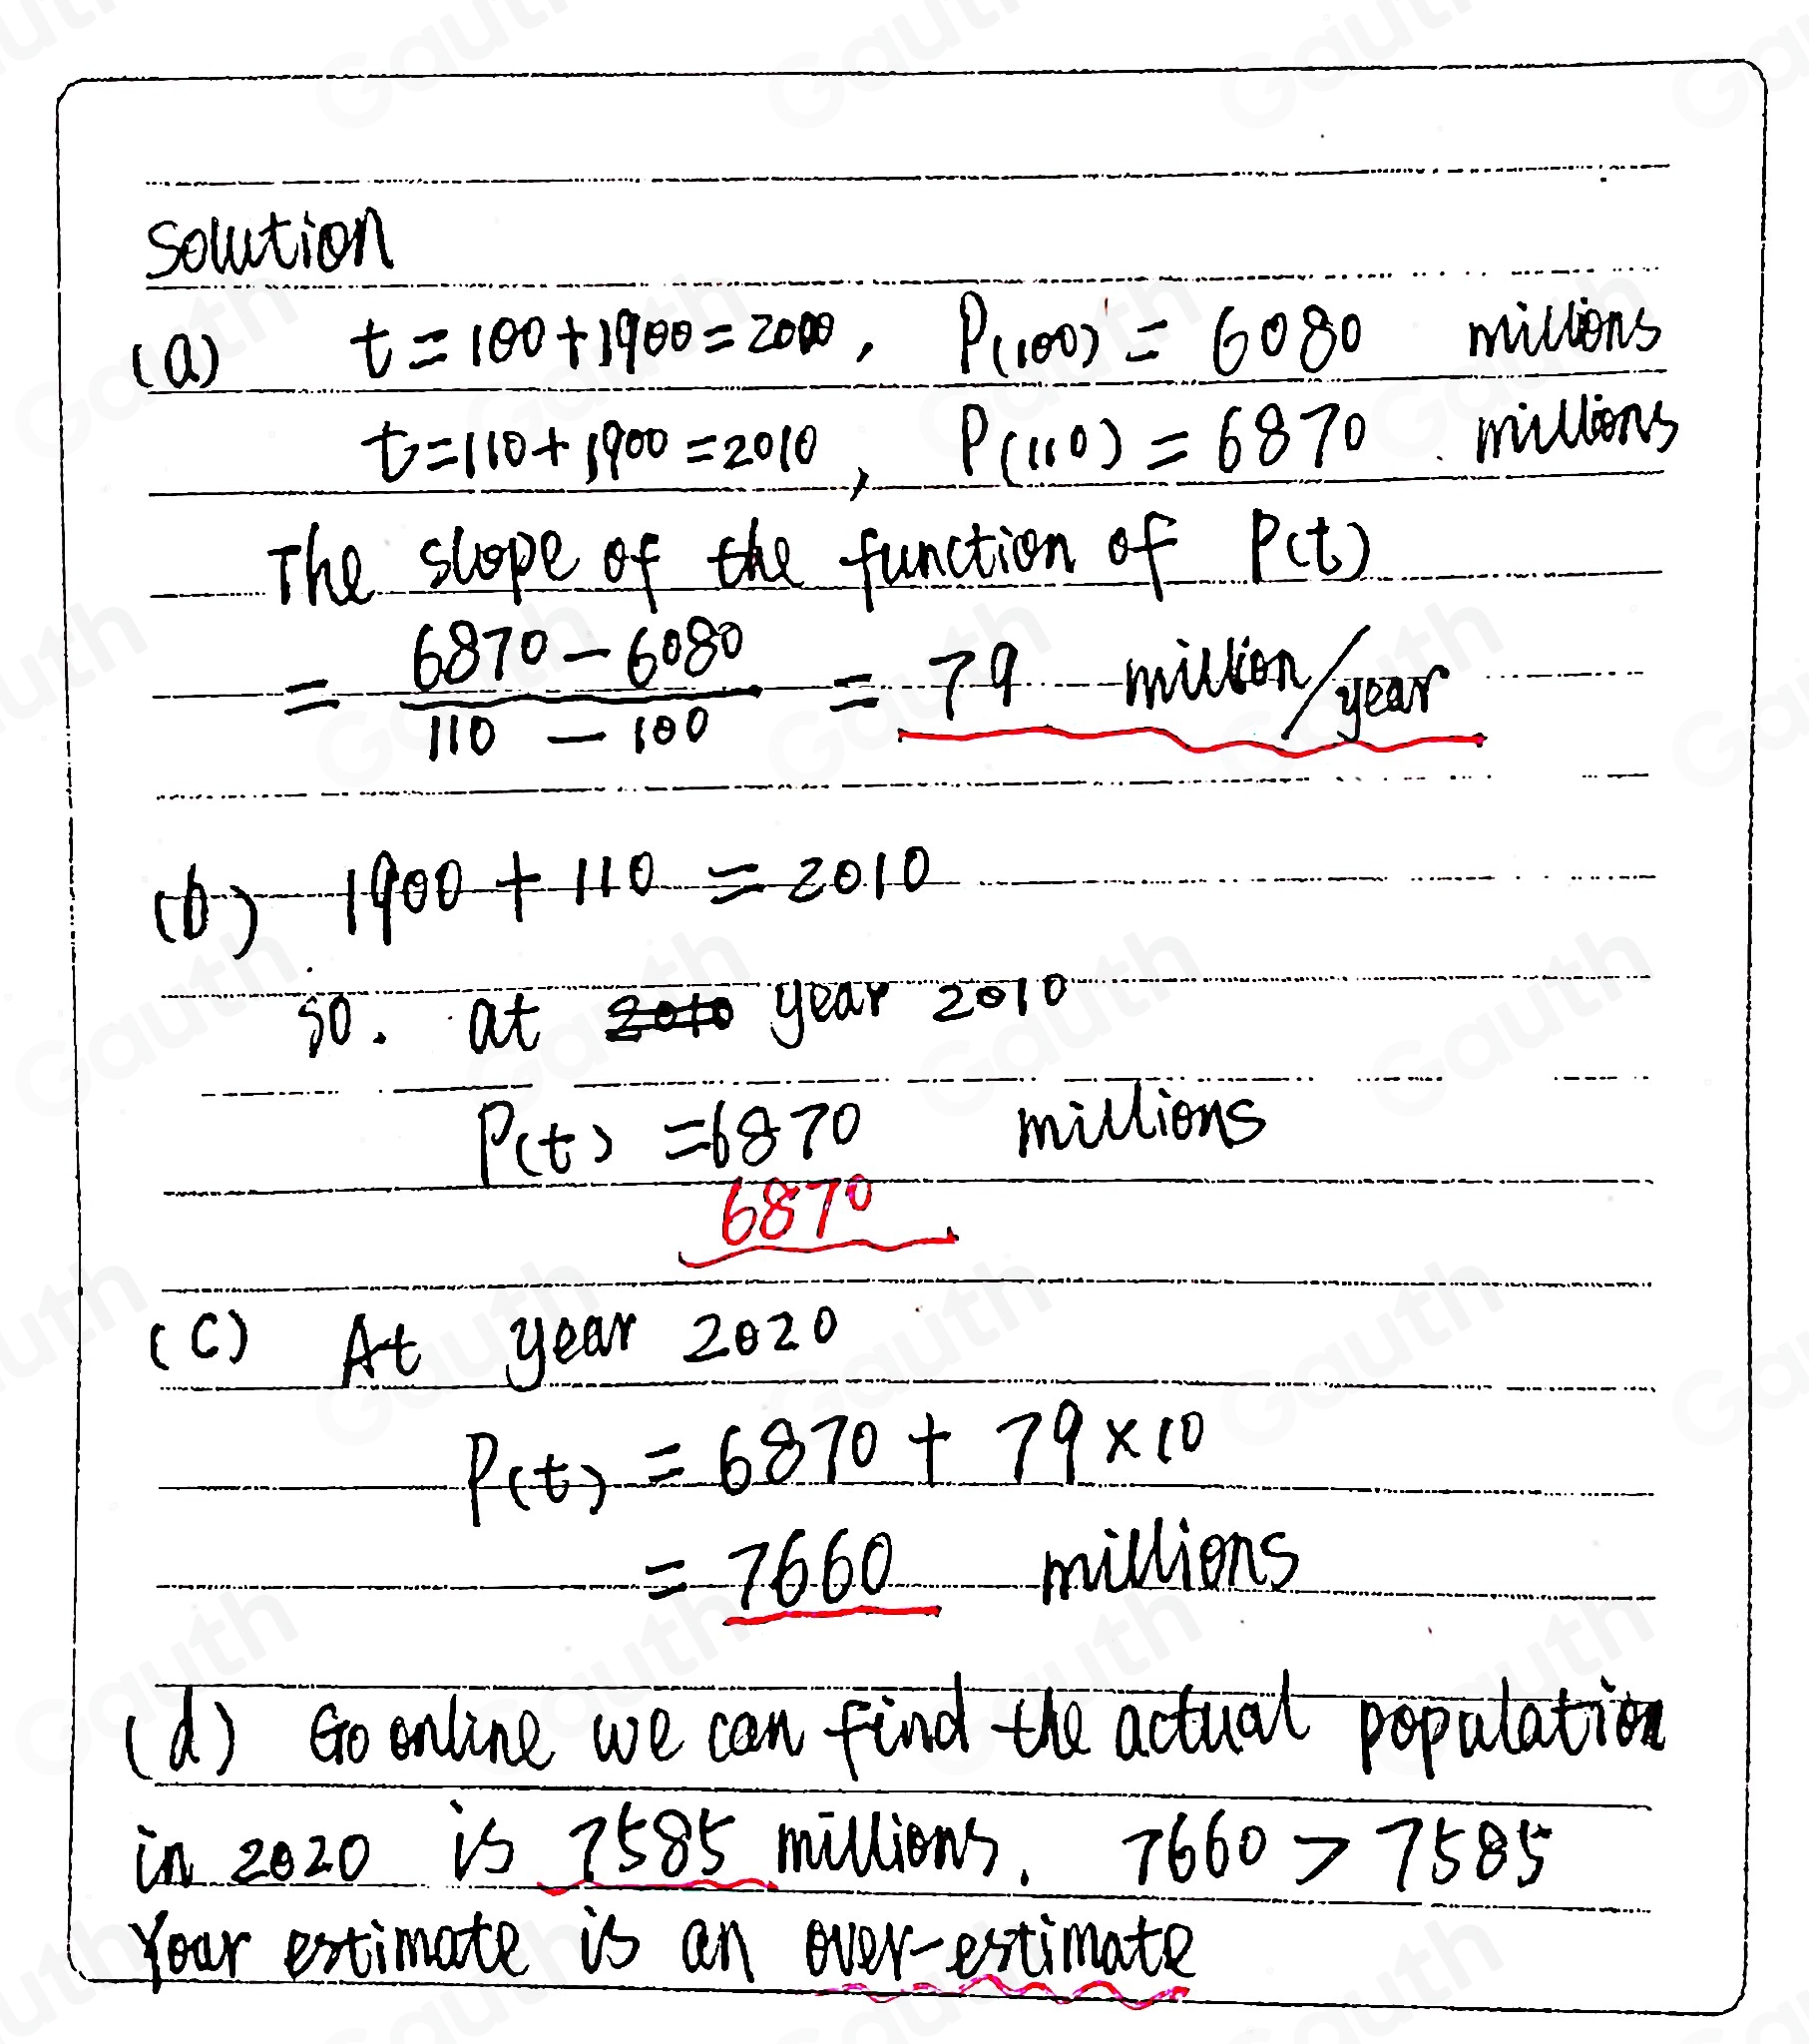 Solution
(a) t = 100 + 1900 = 2000, P(100) = 6080 millions
t = 110 + 1900 = 2010, P(110) = 6870 millions
The slope of the function of P(t)
= 6870 - 6080 / 110 - 100 = 79 million/year
(b) 1900 + 110 = 2010
so. at 2010 year 2010
P(t) = 6870 millions
6870
(c) At year 2020
P(t) = 6870 + 79 × 10
= 7660 millions
(d) Go online we can find the actual population
in 2020 is 7585 millions. 7660 > 7585
Your estimate is an over-estimate
Gauth